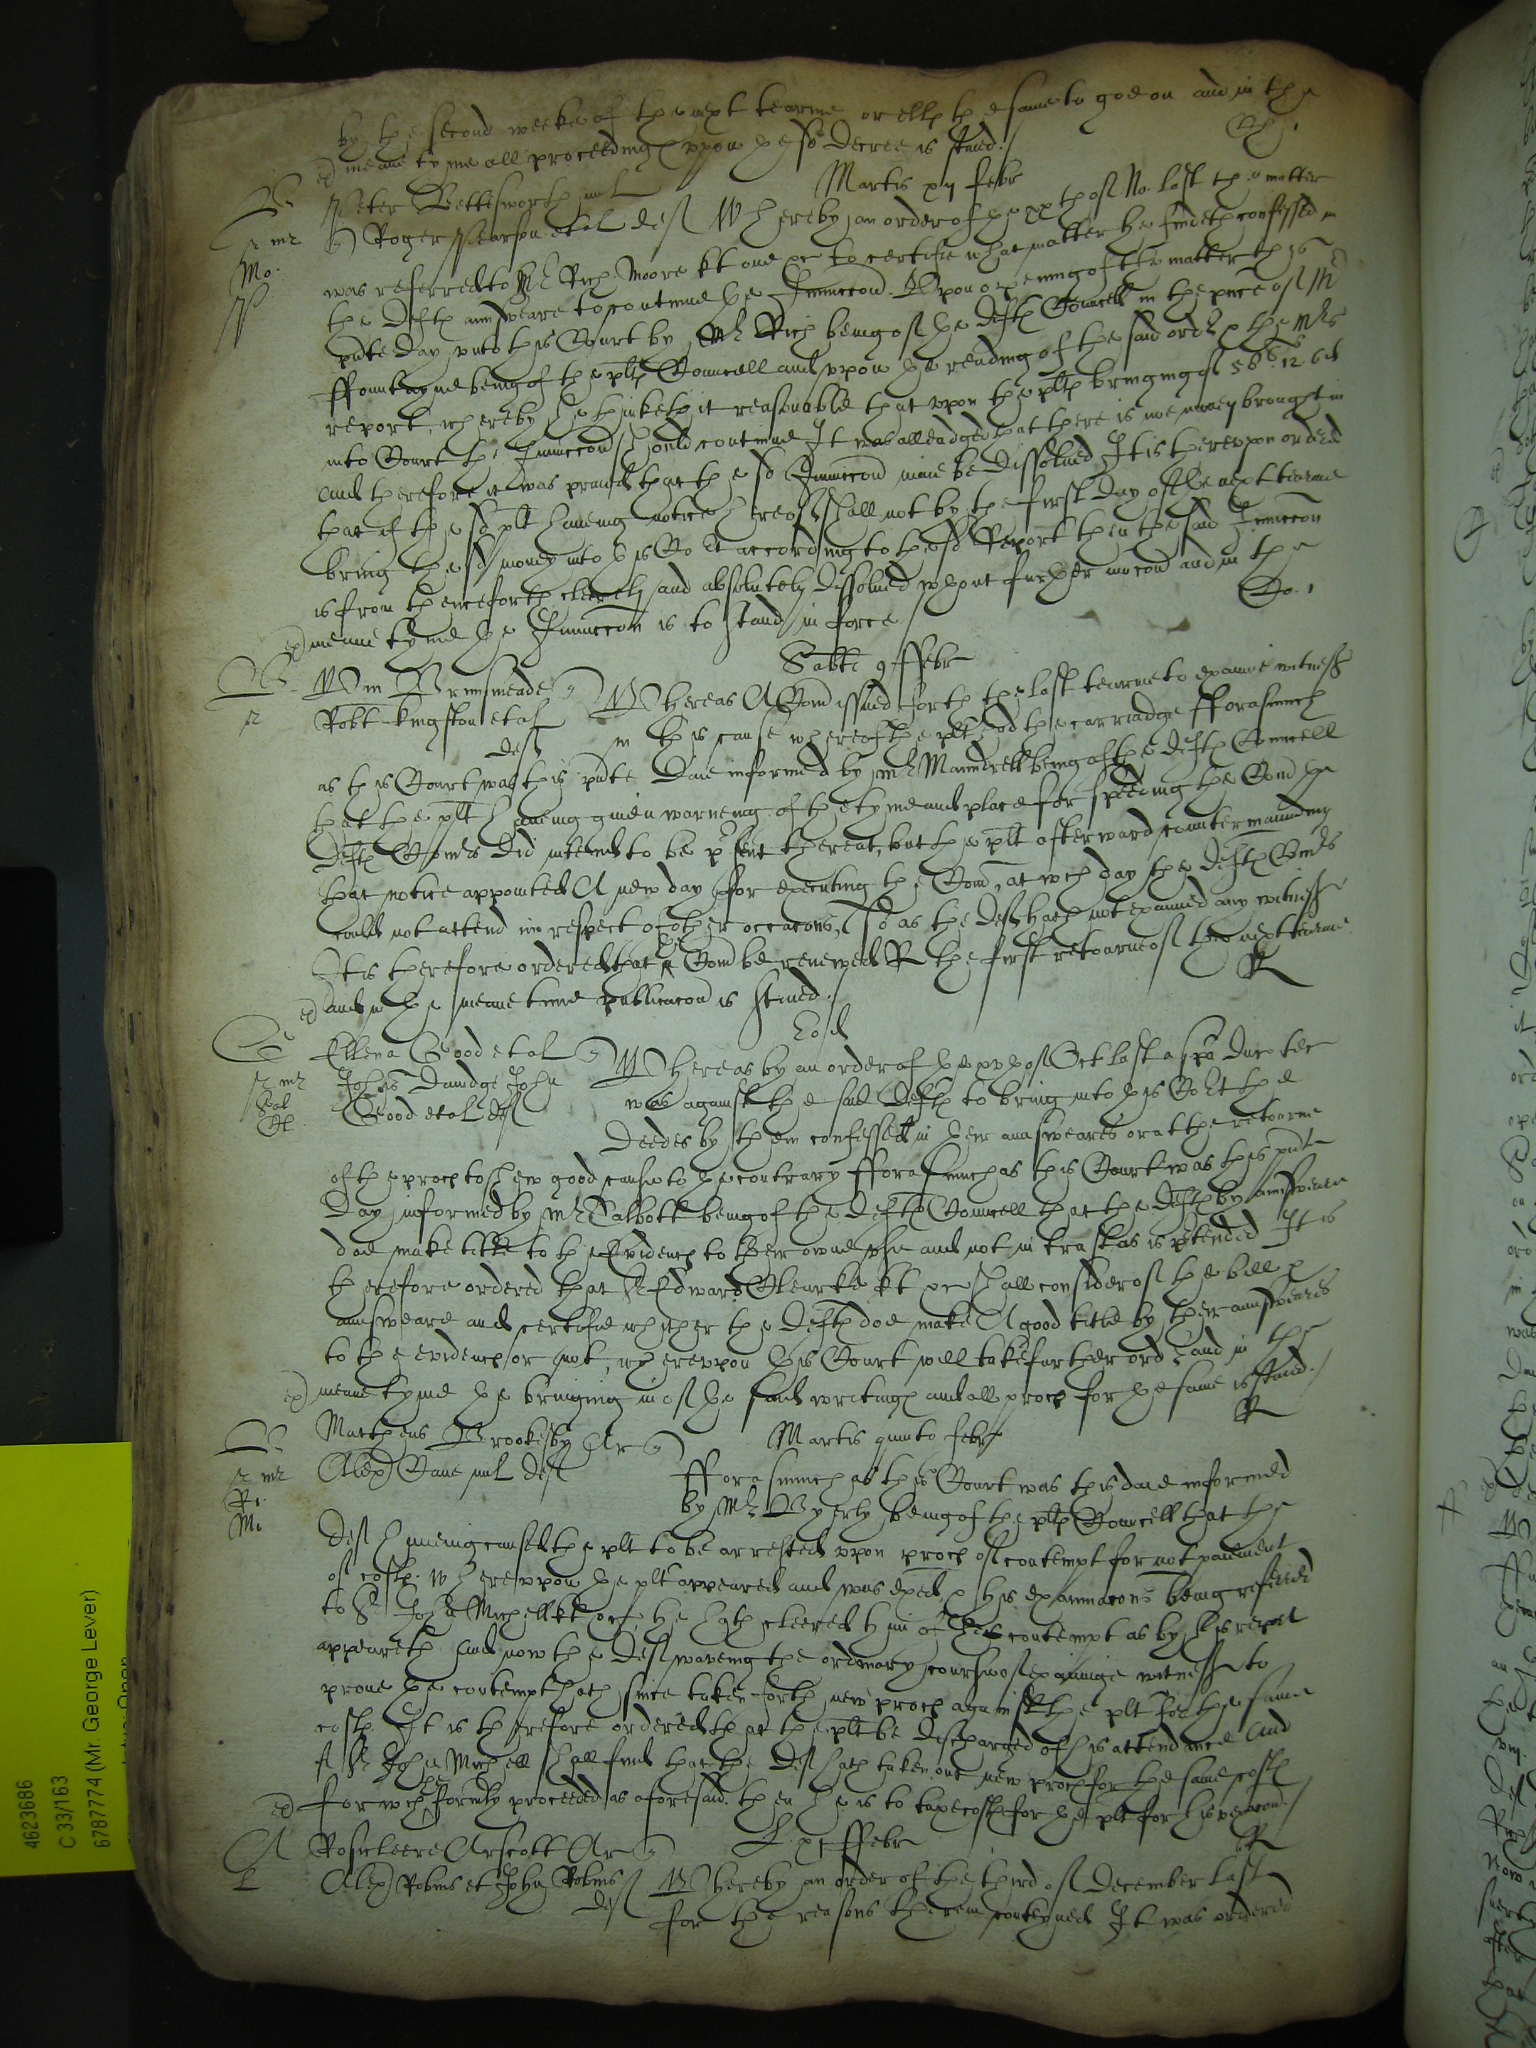 by the second weeke of the next tearme or ells the same to goe on and in the
meane tyme all proceedings vppon the sd Decree is staied
Martis xij febr
Peter Bettesworth mil
Roger Pearson et al def Whereby an order of the xxth of No: last the matter
was referred to Sr Rich Moore kt one &c to certifie what matter he findeth confessed in
the Defts answeare to contineue the Iniuccon. Vpon opening of the matter this
pnte Day vnto this Court by Mr Rich being of the Defts Councell in the pnce of Mr
ffountayne being of the plts Councell and vppon the reading of the said order & the Mrs
report whereby he thinketh it reasonable that vpon the plts bringing of 58li 12s 6d
into Court the Iniuccon should contineue It was alleadged that there is noe money brought in
and therefore it was praied that the sd Iniuccon maie be dissolued It is therevpon ordered
that if the sd plt haueing notice hereof shall not by the first day of the next tearme
bring the sd money into this Cort according to the sd Report then the said Iniuccon
is from thenceforth cleerely and absolutely dissolued wthout further mocon and in the
meane tyme the Iniuccon is to stand in force
Sabti 9 ffebr
Wm Brinsmeade
Robt Kingston et al
def
Whereas A Com issued forth the last tearme to examine witnesses
in this cause whereof the plt had the carriadge fforasmuch
as this Court was this pnte Daie informed by Mr Maundrell being of the Defts Councell
that the plt haueing giuen warneing of the tyme and place for speeding the Com the
Defts Comrs did intend to be present thereat, but the plt afterward countermaunding
that notice appointed A new day for executing the Com, at wch day the Defts Comrs
could not attend in respect of other occacons, so as the Def hath not examined any witnesses
It is therefore ordered that the Com be renewed R the first retourne of the next tearme
and in the meane time publicacon is staied.
Eod
Ellena Good et al
John Dandge John
Good et al def
Whereas by an order of the xvth of Oct last a spa Duc tec
was against the said Defts to bring into this Cort the
Deedes by them confessed in their answeares or at the retourne
of the proces to shew good cause to the contrary fforasmuch as this Court was this pnte
Day informed by Mr Talbott being of the Defts Councell that the Defts by answeare
doe make title to the Evidences to their owne vse and not in trust as is ptended It is
therefore ordered that Sr Edward Clearke kt &c shall consider of the bill &
answeare and certifie whether the Defts doe make A good title by their answeares
to the evidences or not, wherevpon this Court will take further order and in the
meane tyme the bringing in of the said writings and all proces for the same is staied.
Martis quinto febr
Mattheus Brookesby Ar
Alex Cave mil def
fforasmuch as this Court was this daie informed
by Mr Byerly being of the plts Councell that the
def haueing caused the plt to be arrested vppon proces of contempt for not paiment
of costs. Wherevppon the plt appeared and was exed & his examinacons being referred
to Sr John Michell kt &c, he hath cleered him of the contempt as by his report
appeareth And now the Def waveing the ordinary course of examining witnesses to
prove the contempt hath since taken forth new proces against the plt for the same
costs. It is therefore ordered that the plt be discharged of his attendance And
if Sr John Michell shall find that the Def hath taken out new proces for the same costs
for wch he formerly proceeded as aforesaid. then he is to taxe costs for the plt for his vexacon.
ffebr
Arscott Ar
Alex Robins et John Robins
def
Whereby an order of the third of December last
for the reasons therein conteyned It was ordered
4623686
C 33/163
6787774 (Mr. George Lever)